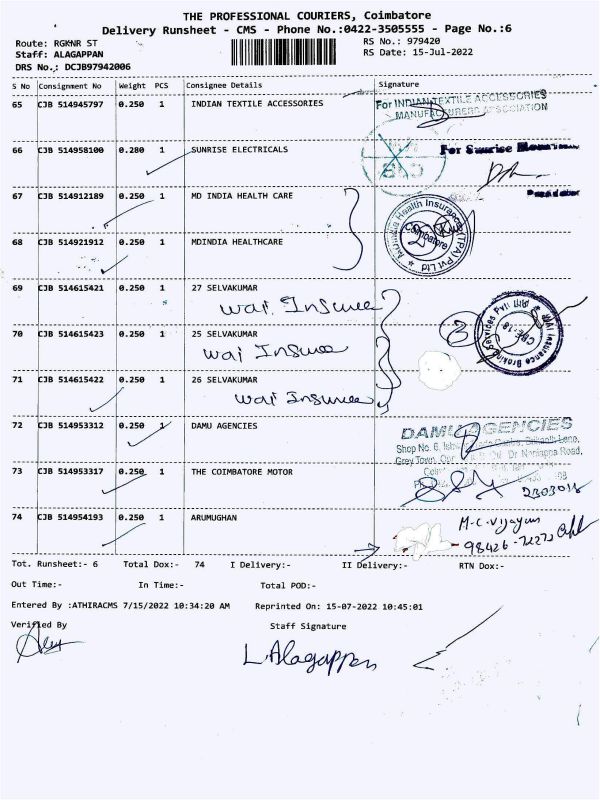 THE PROFESSIONAL COURIERS, Coimbatore
Delivery Runsheet - CMS - Phone No.:0422-3505555 - Page No.:6
Route: RGKNR ST
RS No.: 979420
Staff: ALAGAPPAN
RS Date: 15-Jul-2022
DRS No.: DCJB97942006
S No Consignment No Weight PCS Consignee Details Signature
65 CJB 514945797 0.250 1 INDIAN TEXTILE ACCESSORIES
For INDIAN TEXTILE ACCESSORIES
MANUFACTURERS ASSOCIATION
66 CJB 514958100 0.280 1 SUNRISE ELECTRICALS
For Sunrise
67 CJB 514912189 0.250 1 MD INDIA HEALTH CARE
MDIndia Health Insurance (TPA) Pvt Ltd
Coimbatore
68 CJB 514921912 0.250 1 MDINDIA HEALTHCARE
69 CJB 514615421 0.250 1 27 SELVAKUMAR
wai Insurce
WAI Insurance Broking Services Pvt.
CBE-18
70 CJB 514615423 0.250 1 25 SELVAKUMAR
wai Insurce
71 CJB 514615422 0.250 1 26 SELVAKUMAR
wai Insurce
72 CJB 514953312 0.250 1 DAMU AGENCIES
DAMU AGENCIES
Shop No. 6, Lane,
Grey Town, Dr Nanjappa Road,
73 CJB 514953317 0.250 1 THE COIMBATORE MOTOR
2303018
74 CJB 514954193 0.250 1 ARUMUGHAN
M-C-Vijayan
98426-72272
Tot. Runsheet:- 6 Total Dox:- 74 I Delivery:- II Delivery:- RTN Dox:-
Out Time:- In Time:- Total POD:-
Entered By :ATHIRACMS 7/15/2022 10:34:20 AM Reprinted On: 15-07-2022 10:45:01
Verified By Staff Signature
L.Alagappan